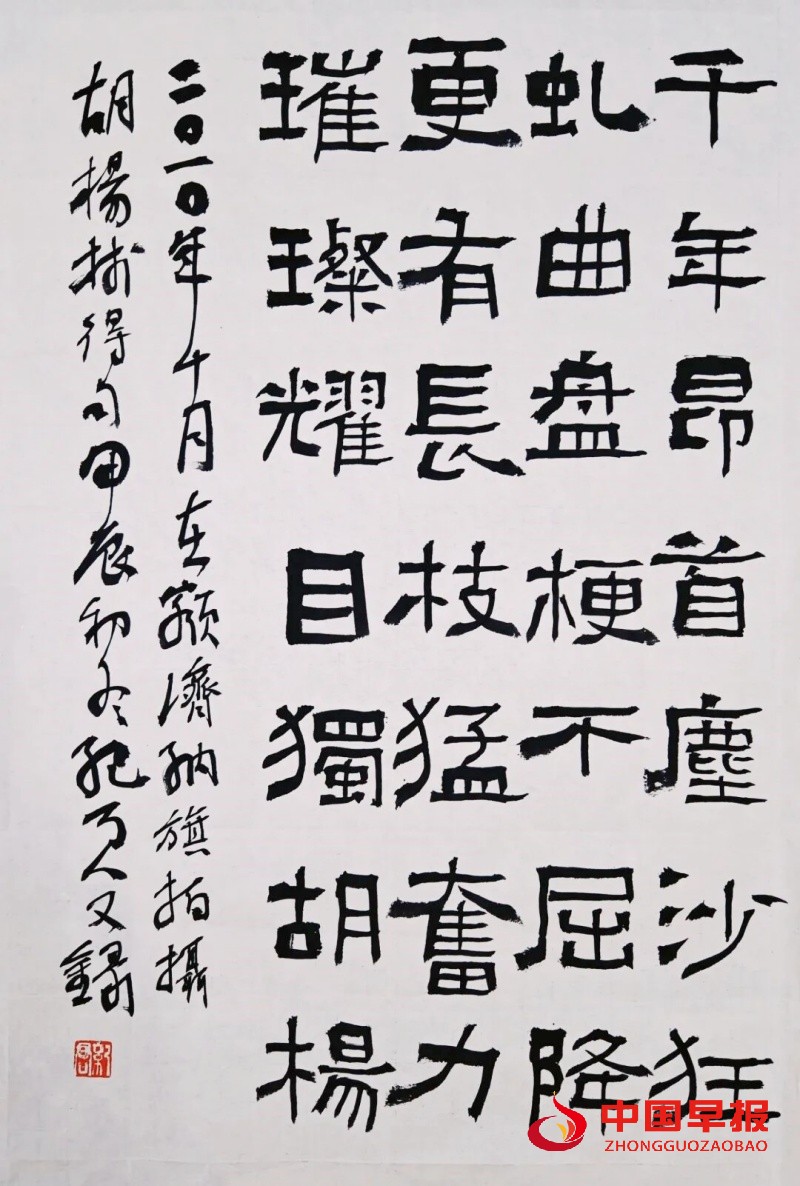 千年昂首塵沙狂
虬曲盘梗不屈降
更有長枝猛奮力
璀璨耀目獨胡楊
二〇一〇年十月在額濟納旗拍攝
胡楊林得句甲辰初冬紀人又錄
中国早报
ZHONGGUOZAOBAO